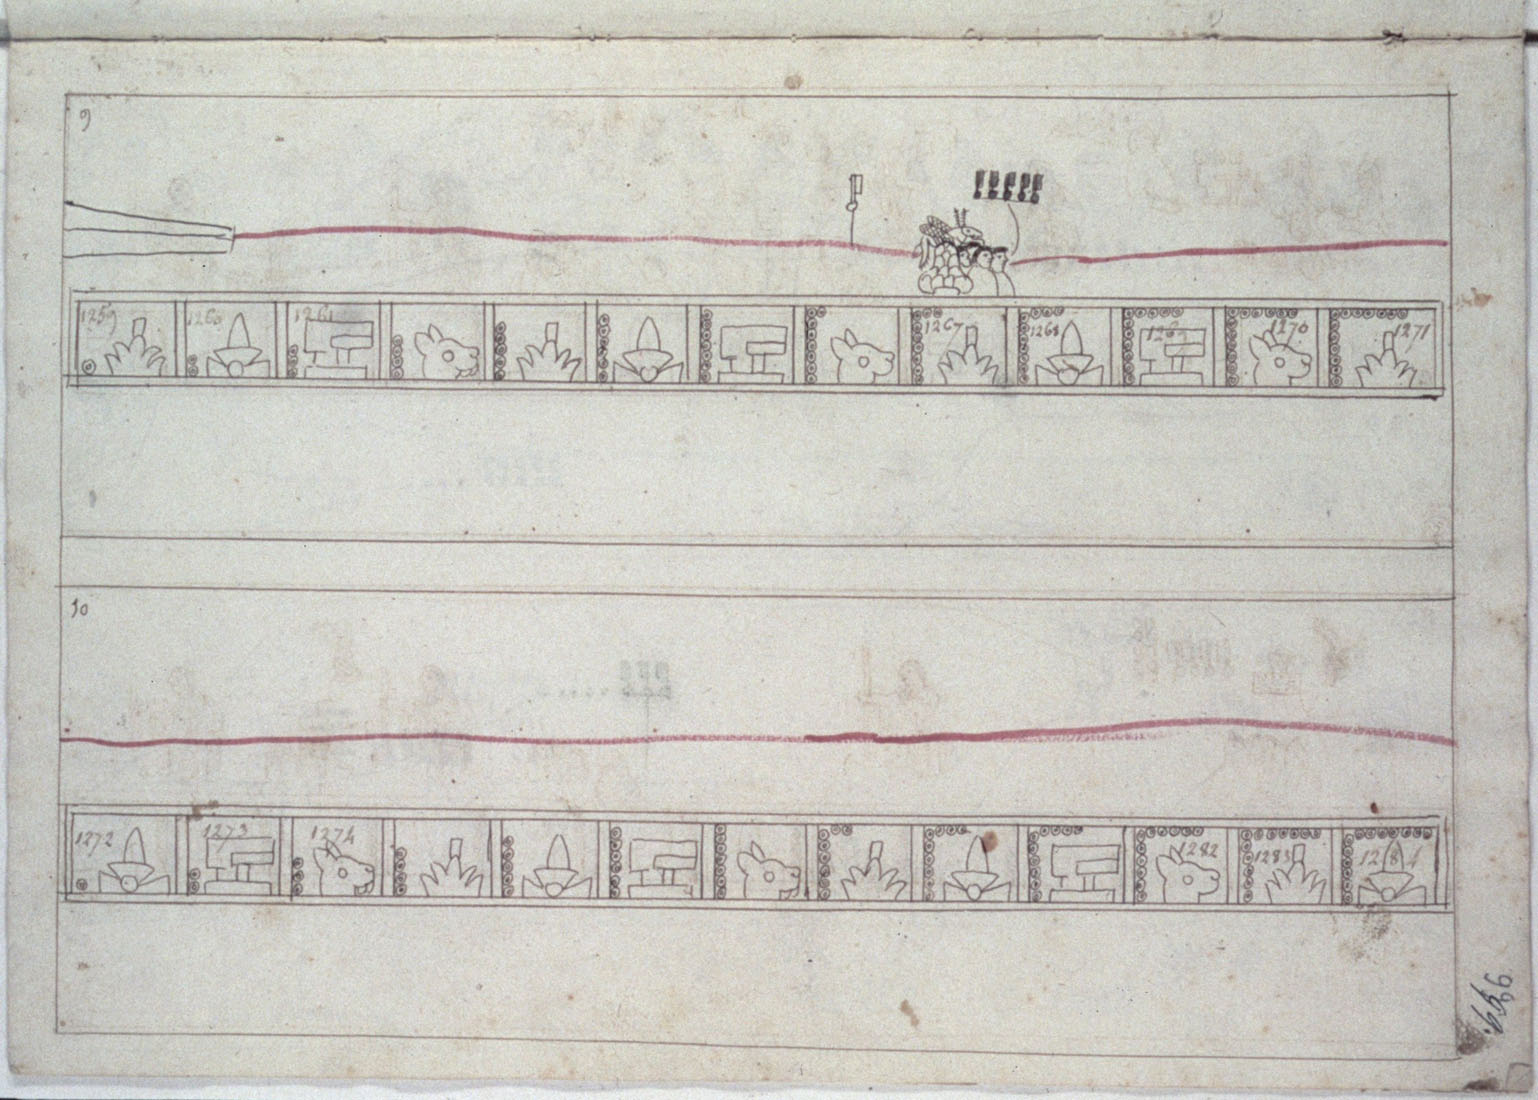 9
1259 1260 1261 1267 1268 1269 1270 1271
10
1272 1273 1274 1282 1283 1284